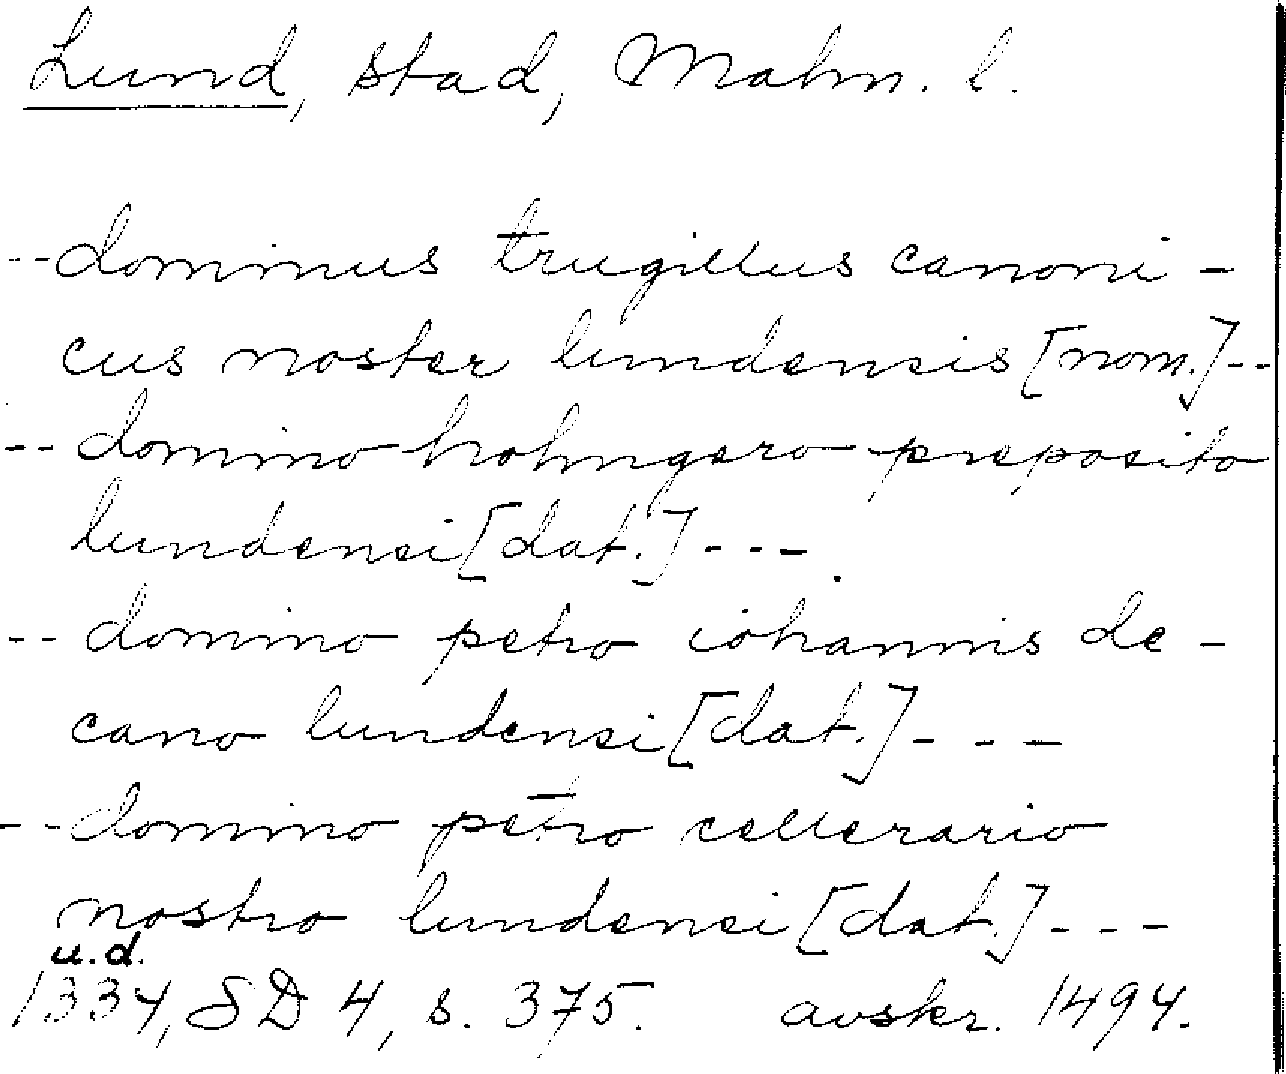 Lund, stad, Malm. l.
--dominus trugillus canoni-
cus noster lundensis [nom.]--
-- domino holmgero preposito
lundensi [dat.] ---
-- domino petro iohannis de-
cano lundensi [dat.] ---
-- domino petro cellerario
nostro lundensi [dat.] ---
u.d.
1334, SD 4, s. 375. avskr. 1494.